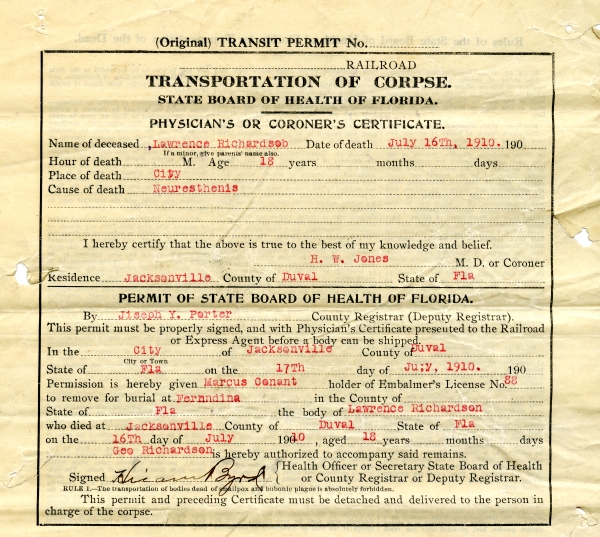 (Original) TRANSIT PERMIT No.
RAILROAD
TRANSPORTATION OF CORPSE.
STATE BOARD OF HEALTH OF FLORIDA.
PHYSICIAN'S OR CORONER'S CERTIFICATE.
Name of deceased, Lawrence Richardsob Date of death July 16Th, 1910. 190
If a minor, give parents' name also.
Hour of death M. Age 18 years months days
Place of death City
Cause of death Neuresthenis
I hereby certify that the above is true to the best of my knowledge and belief.
H. W. Jones M. D. or Coroner
Residence Jacksonville County of Duval State of Fla
PERMIT OF STATE BOARD OF HEALTH OF FLORIDA.
By Jiseph Y. Porter County Registrar (Deputy Registrar).
This permit must be properly signed, and with Physician's Certificate presented to the Railroad
or Express Agent before a body can be shipped.
In the City of Jacksonville County of Duval
City or Town
State of Fla on the 17Th day of Ju;y, 1910. 190
Permission is hereby given Marcus Conant holder of Embalmer's License No. 88
to remove for burial at Fernndina in the County of
State of Fla the body of Lawrence Richardson
who died at Jacksonville County of Duval State of Fla
on the 16Th day of July 1910, aged 18 years months days
Geo Richardson is hereby authorized to accompany said remains.
Signed Hiram Byrd { Health Officer or Secretary State Board of Health
or County Registrar or Deputy Registrar.
RULE 1.—The transportation of bodies dead of smallpox and bubonic plague is absolutely forbidden.
This permit and preceding Certificate must be detached and delivered to the person in
charge of the corpse.